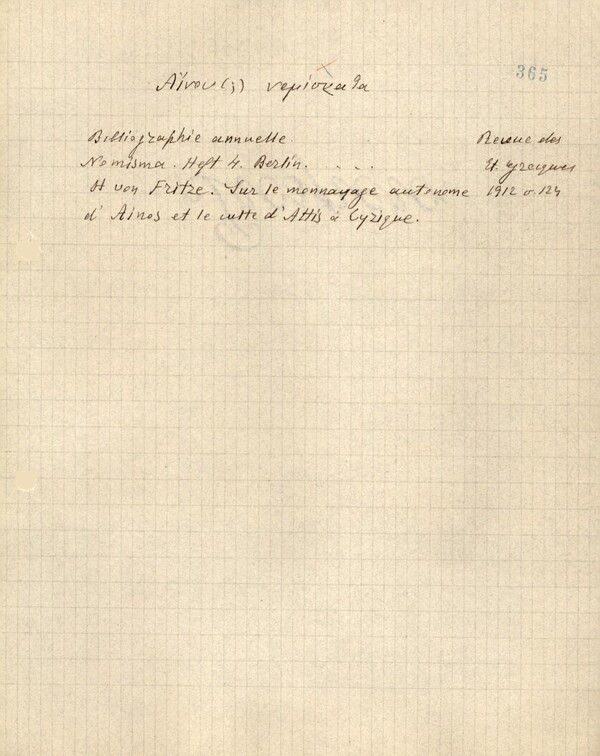 365
Αίνου(;) νομίσματα
Bibliographie annuelle. Revue des
Nomisma. Heft 4. Berlin. . . . Et. grecques
H von Fritze. Sur le monnayage autonome 1912 σ. 124
d'Ainos et le culte d'Attis à Cyzique.